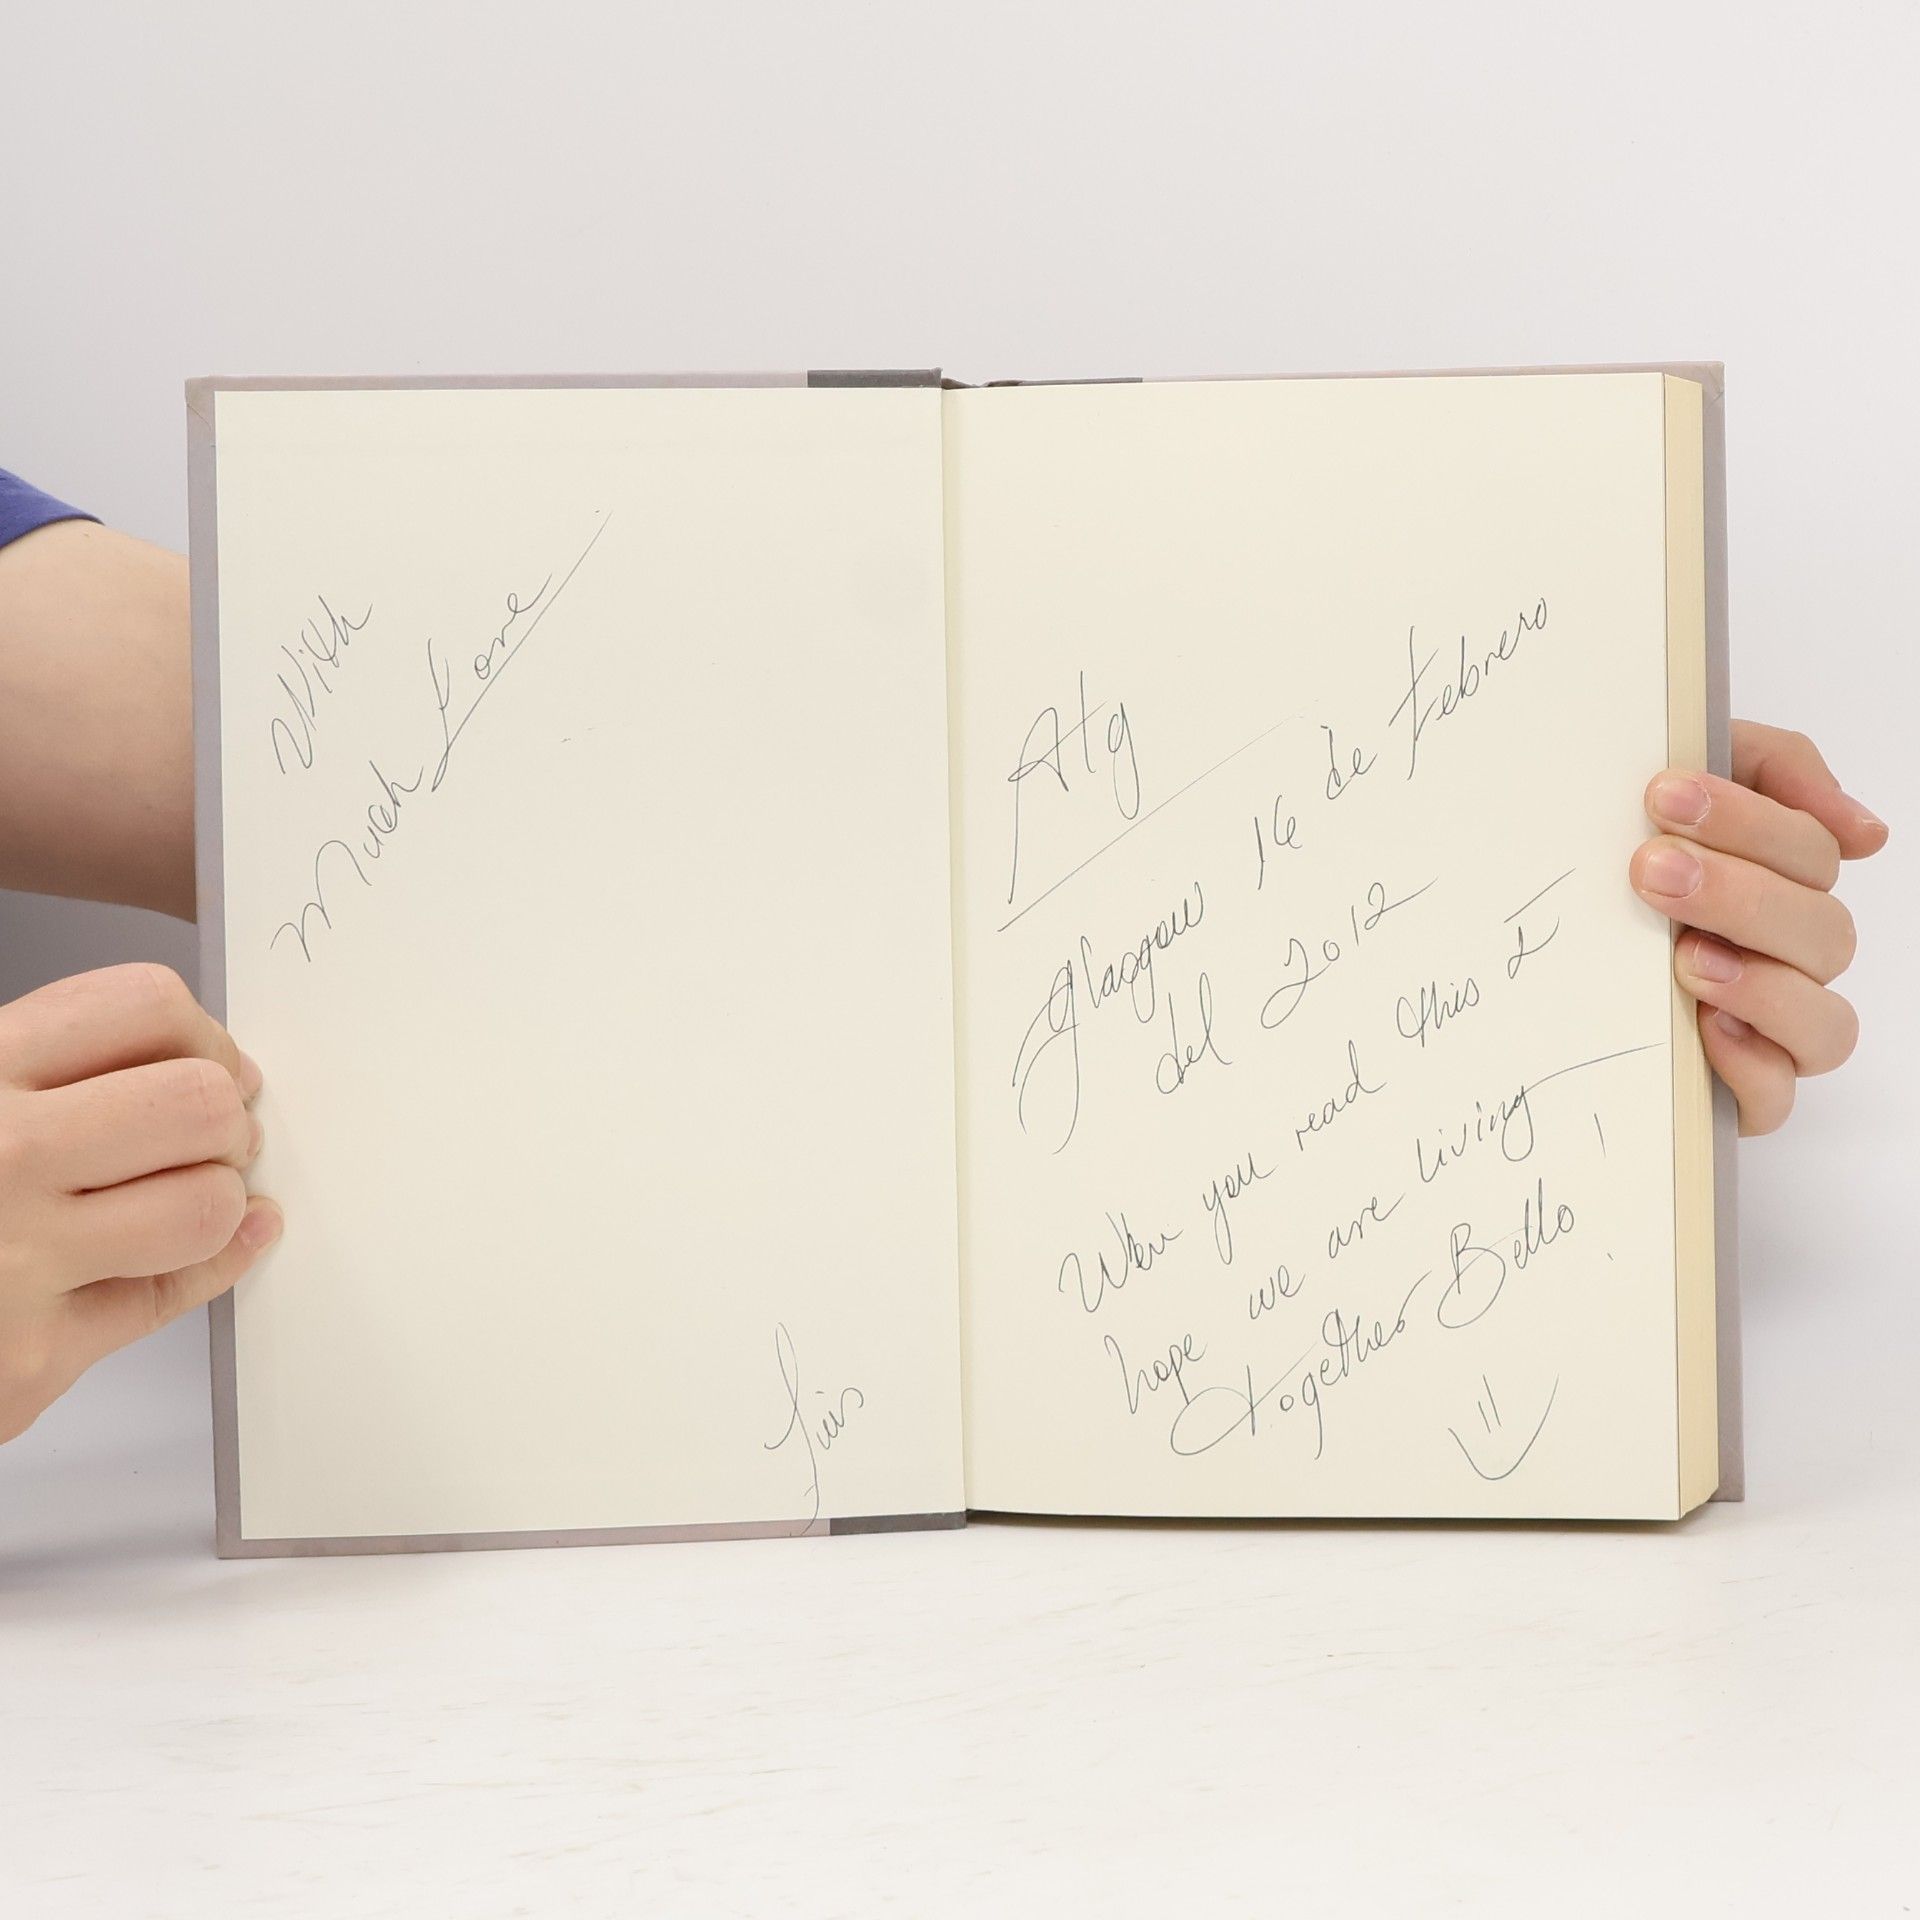 With
Much Love
Luis
Atg
Glasgow 16 de Febrero
del 2012
When you read this I
hope we are living
together Bello!